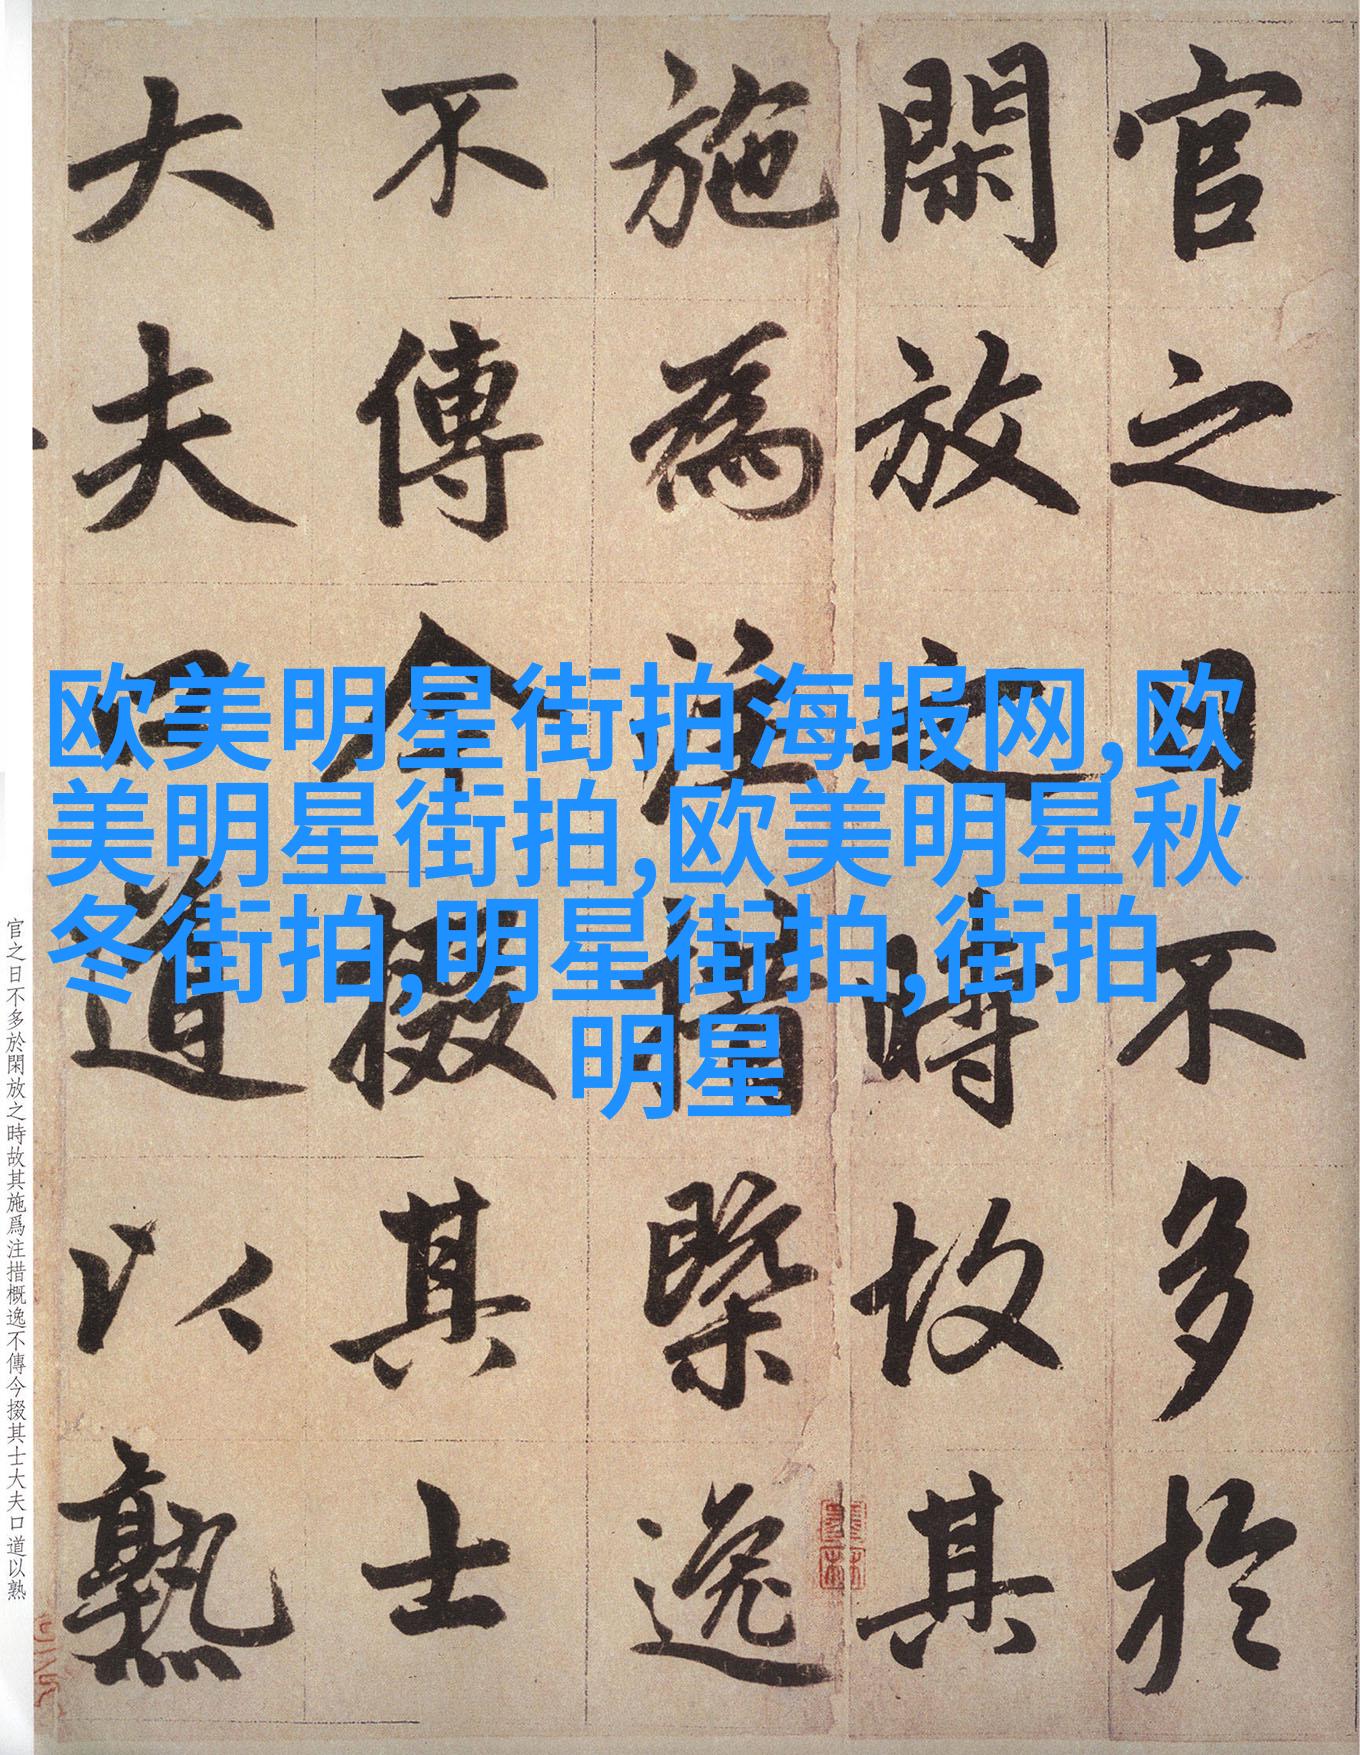 官之日不多於
閑放之時故其
施為注措槩逸
不傳今掇其士
大夫口道以熟
欧美明星街拍海报网,欧
美明星街拍,欧美明星秋
冬街拍,明星街拍,街拍
明星
官之日不多於閑放之時故其施爲注措概逸不傳今掇其士大夫口道以熟